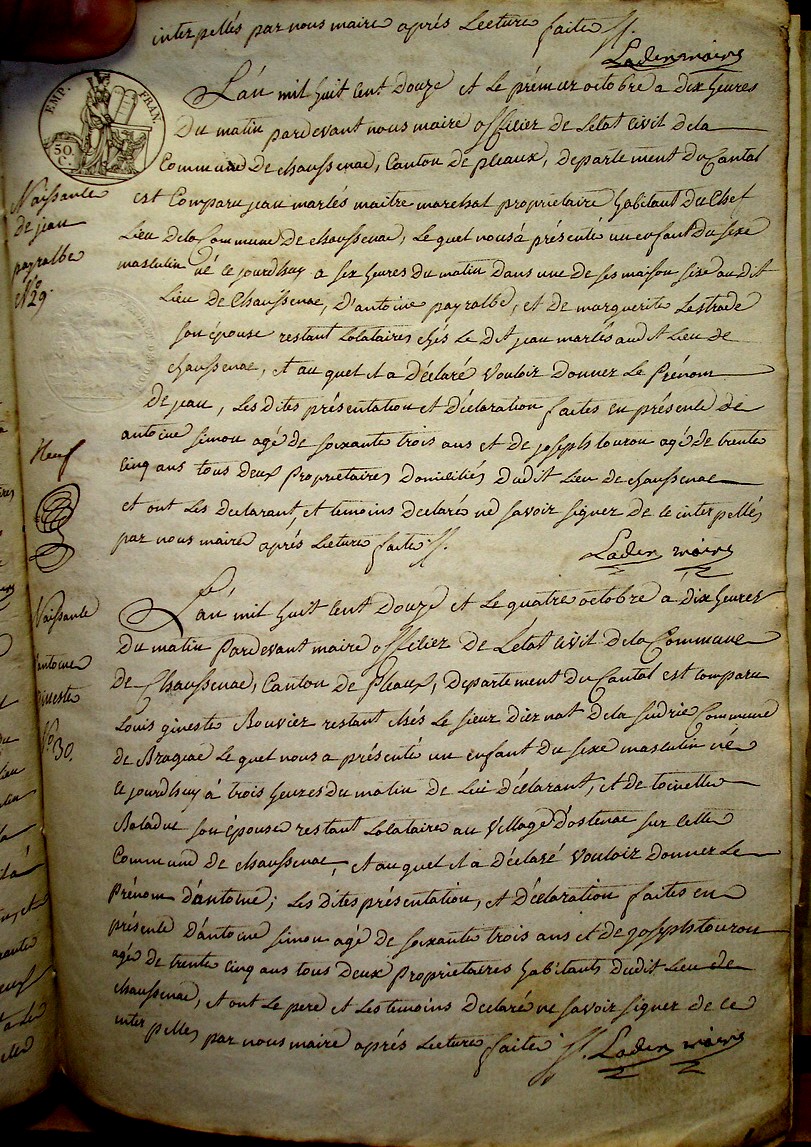 interpellés par nous maire aprés Lecture faite
Laden maire
EMP. FRAN.
50 C.
L'an mil huit cent Douze et le premier octobre a dix heures
Du matin pardevant nous maire officier de Letat civil dela
Commune De chaussenac, Canton de pleaux, departement du Cantal
est Comparu jean marlés maitre marechal propriétaire habitant du Chef
Lieu dela Commune De chaussenac, Lequel nous a présenté un enfant du sexe
masculin né ce jourdhuy a six heures du matin Dans une de ses maison sise au dit
Lieu de Chaussenac, D'antoine payralbe, et de marguerite Lestrade
son épouse restant Locataires chés Le Dit jean marlés audit Lieu de
chaussenac, et au quel il a déclaré Vouloir Donner Le Prénom
De jean, Les Dites présentation et Déclaration faites en présence de
antoine simon agé de soixante trois ans et de joseph touron agé de trente
cinq ans tous Deux Proprietaires Domiciliés Dudit Lieu de chaussenac
et ont Les declarant, et temoins déclaré ne savoir signer de ce interpellés
par nous maire aprés Lecture faite
Laden maire
Naissance
de jean
payralbe
N° 29.
Neuf
L'an mil huit cent Douze et Le quatre octobre a dix heures
Du matin Pardevant maire officier de Letat civil dela Commune
De Chaussenac, Canton de Pleaux, departement du Cantal est comparu
Louis gineste Bouvier restant chés Le sieur diernat dela sudrie Commune
de Brageac Lequel nous a présenté un enfant du sexe masculin né
ce jourdhuy à trois heures du matin de Lui déclarant, et de toinette
Baladue son épouse restant Locataire au Village D'ostenac sur cette
Commune de chaussenac, et au quel il a déclaré Vouloir Donner Le
Prénom d'antoine; Les Dites présentation, et Déclaration faites en
présence D'antoine simon agé de soixante trois ans et de joseph touron
agé de trente cinq ans tous Deux Proprietaires habitants dudit Lieu de
chaussenac, et ont Le pere et Les temoins déclaré ne savoir signer de ce
interpellés par nous maire aprés Lecture faite
Laden maire
Naissance
antoine
gineste
N° 30.